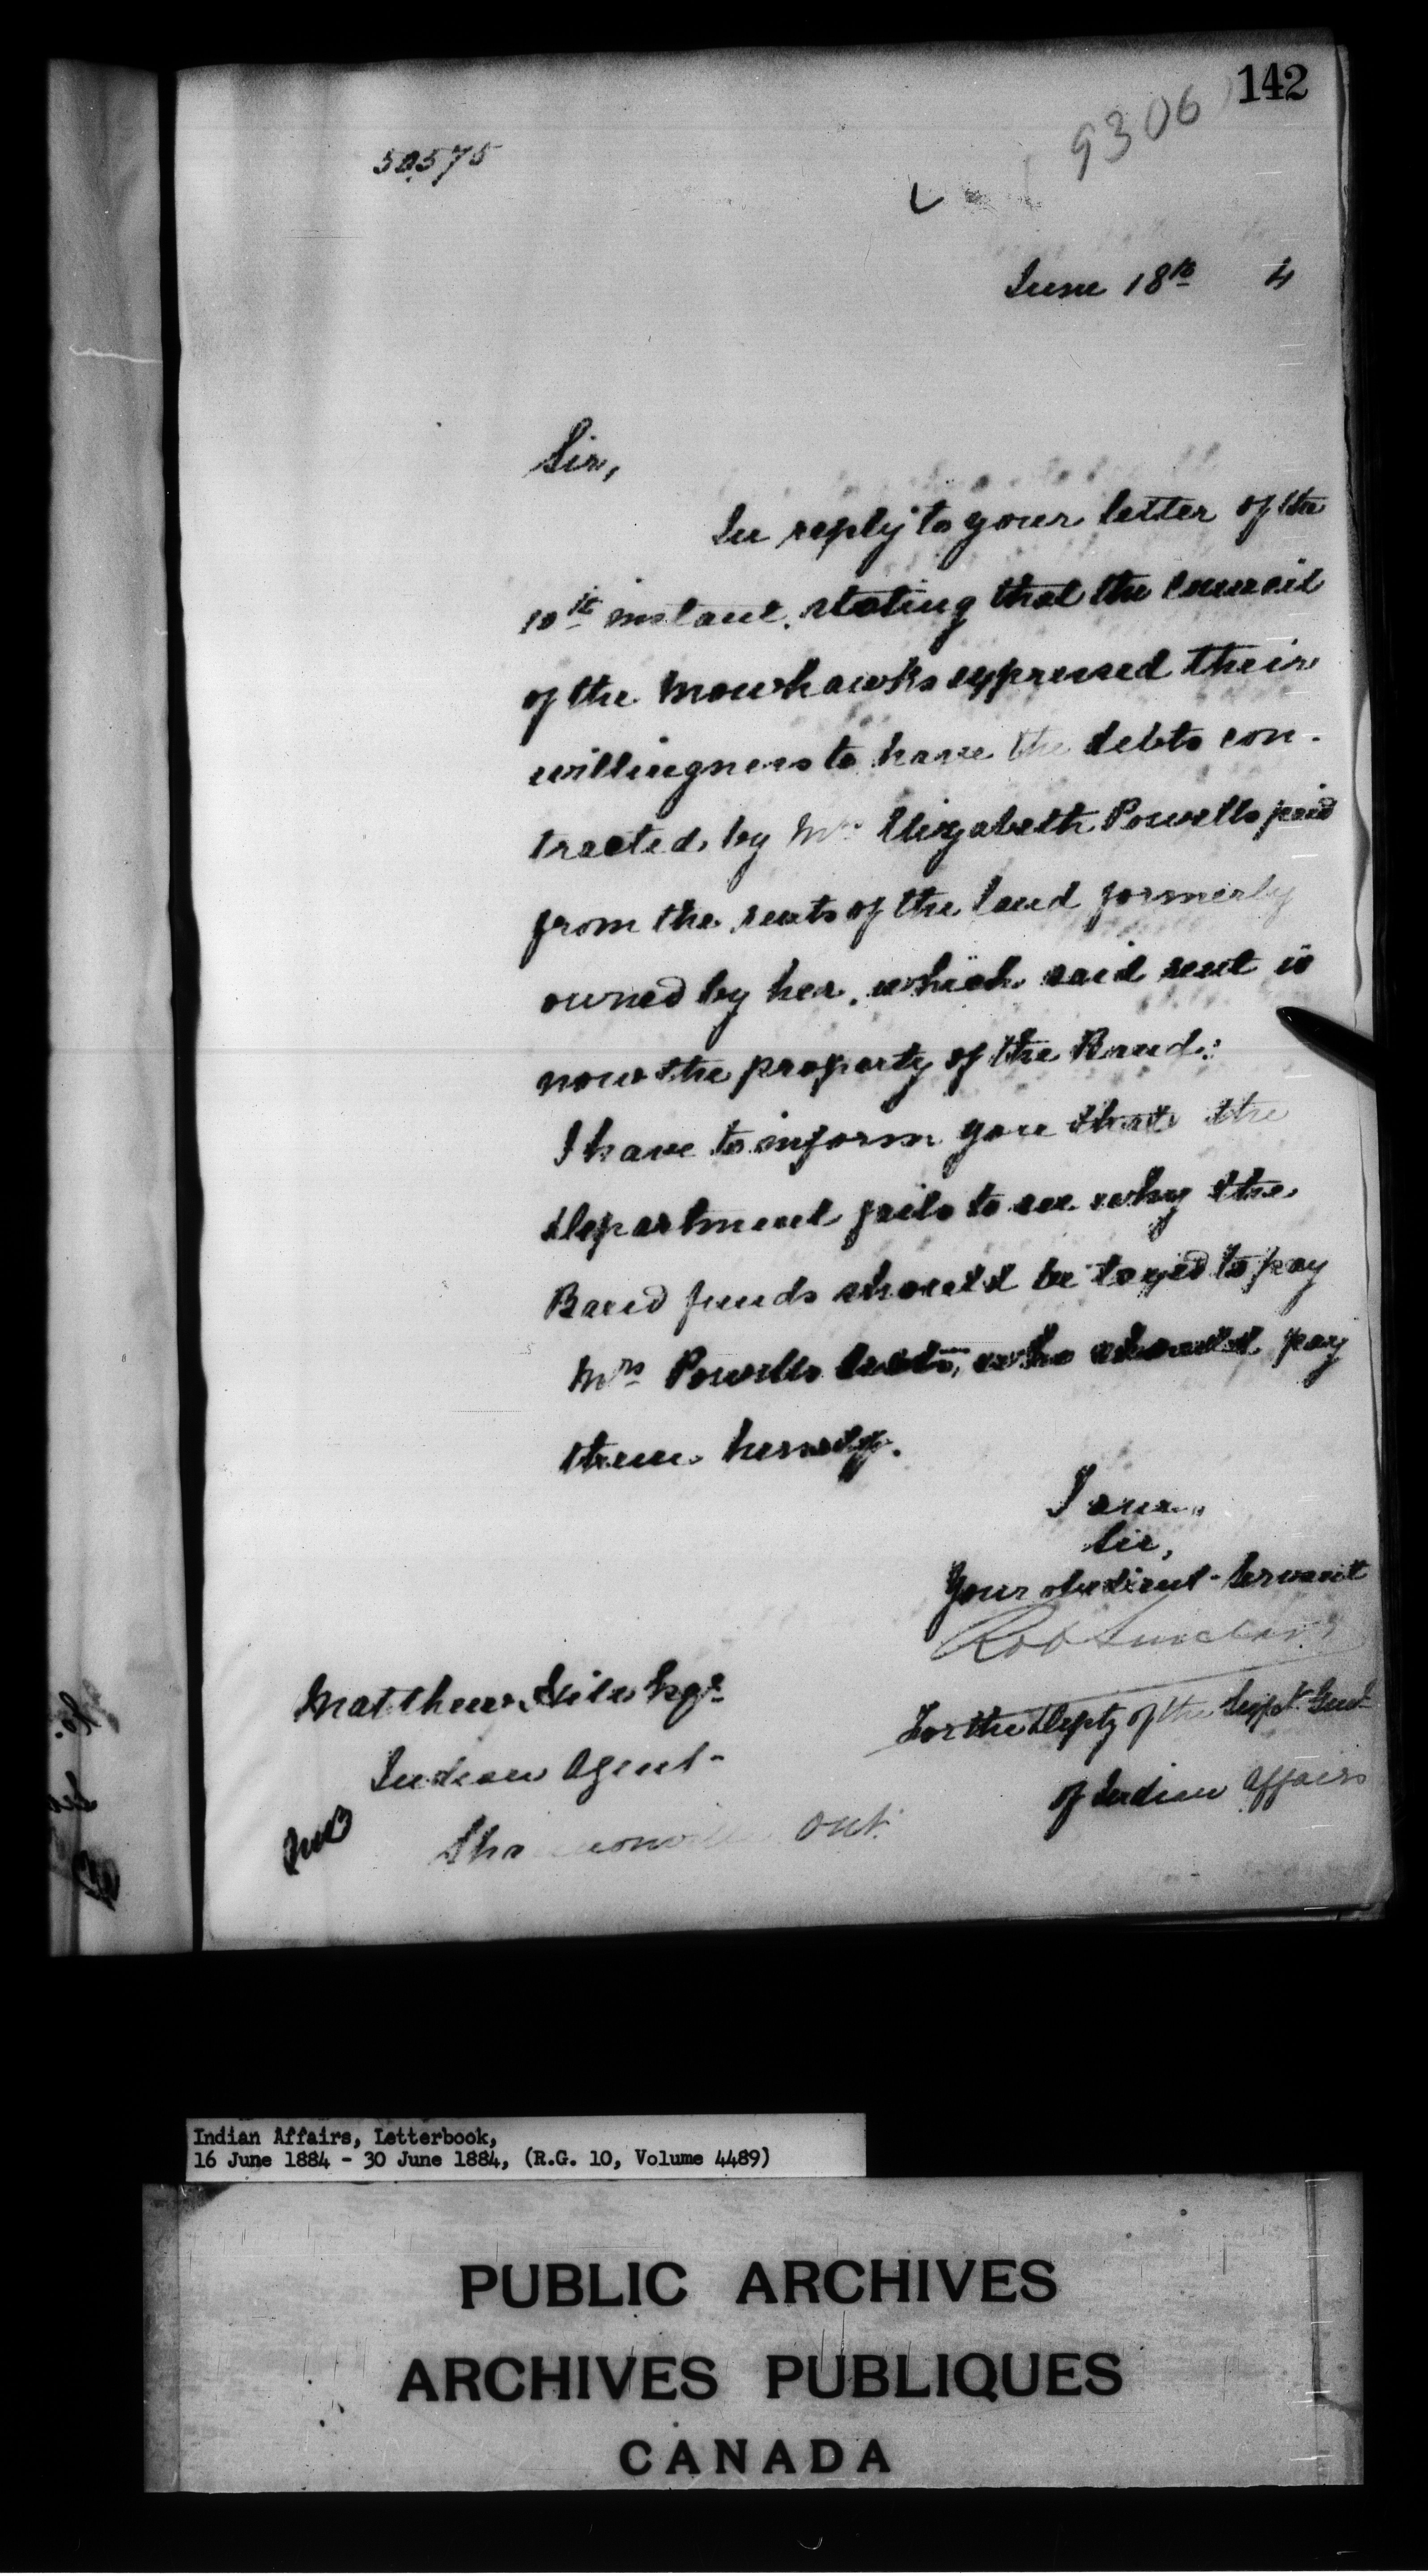 142
9306
50575
June 18th 4
Sir,
In reply to your letter of the
10th instant, stating that the Council
of the Mowhawks expressed their
willingness to have the debts con-
tracted by Mrs Elizabeth Powells paid
from the rents of the land formerly
owned by her, which said rent is
now the property of the Band:
I have to inform you that the
Department fails to see why the
Band funds should be taxed to pay
Mrs Powells debts, who should pay
them herself.
I am,
Sir,
Your obedient Servant
Rob Sinclair
For the Depty of the Supt. Genl
of Indian Affairs
Matthew Hill Esqr.
Indian Agent
Ont.
Indian Affairs, Letterbook,
16 June 1884 - 30 June 1884, (R.G. 10, Volume 4489)
PUBLIC ARCHIVES
ARCHIVES PUBLIQUES
CANADA